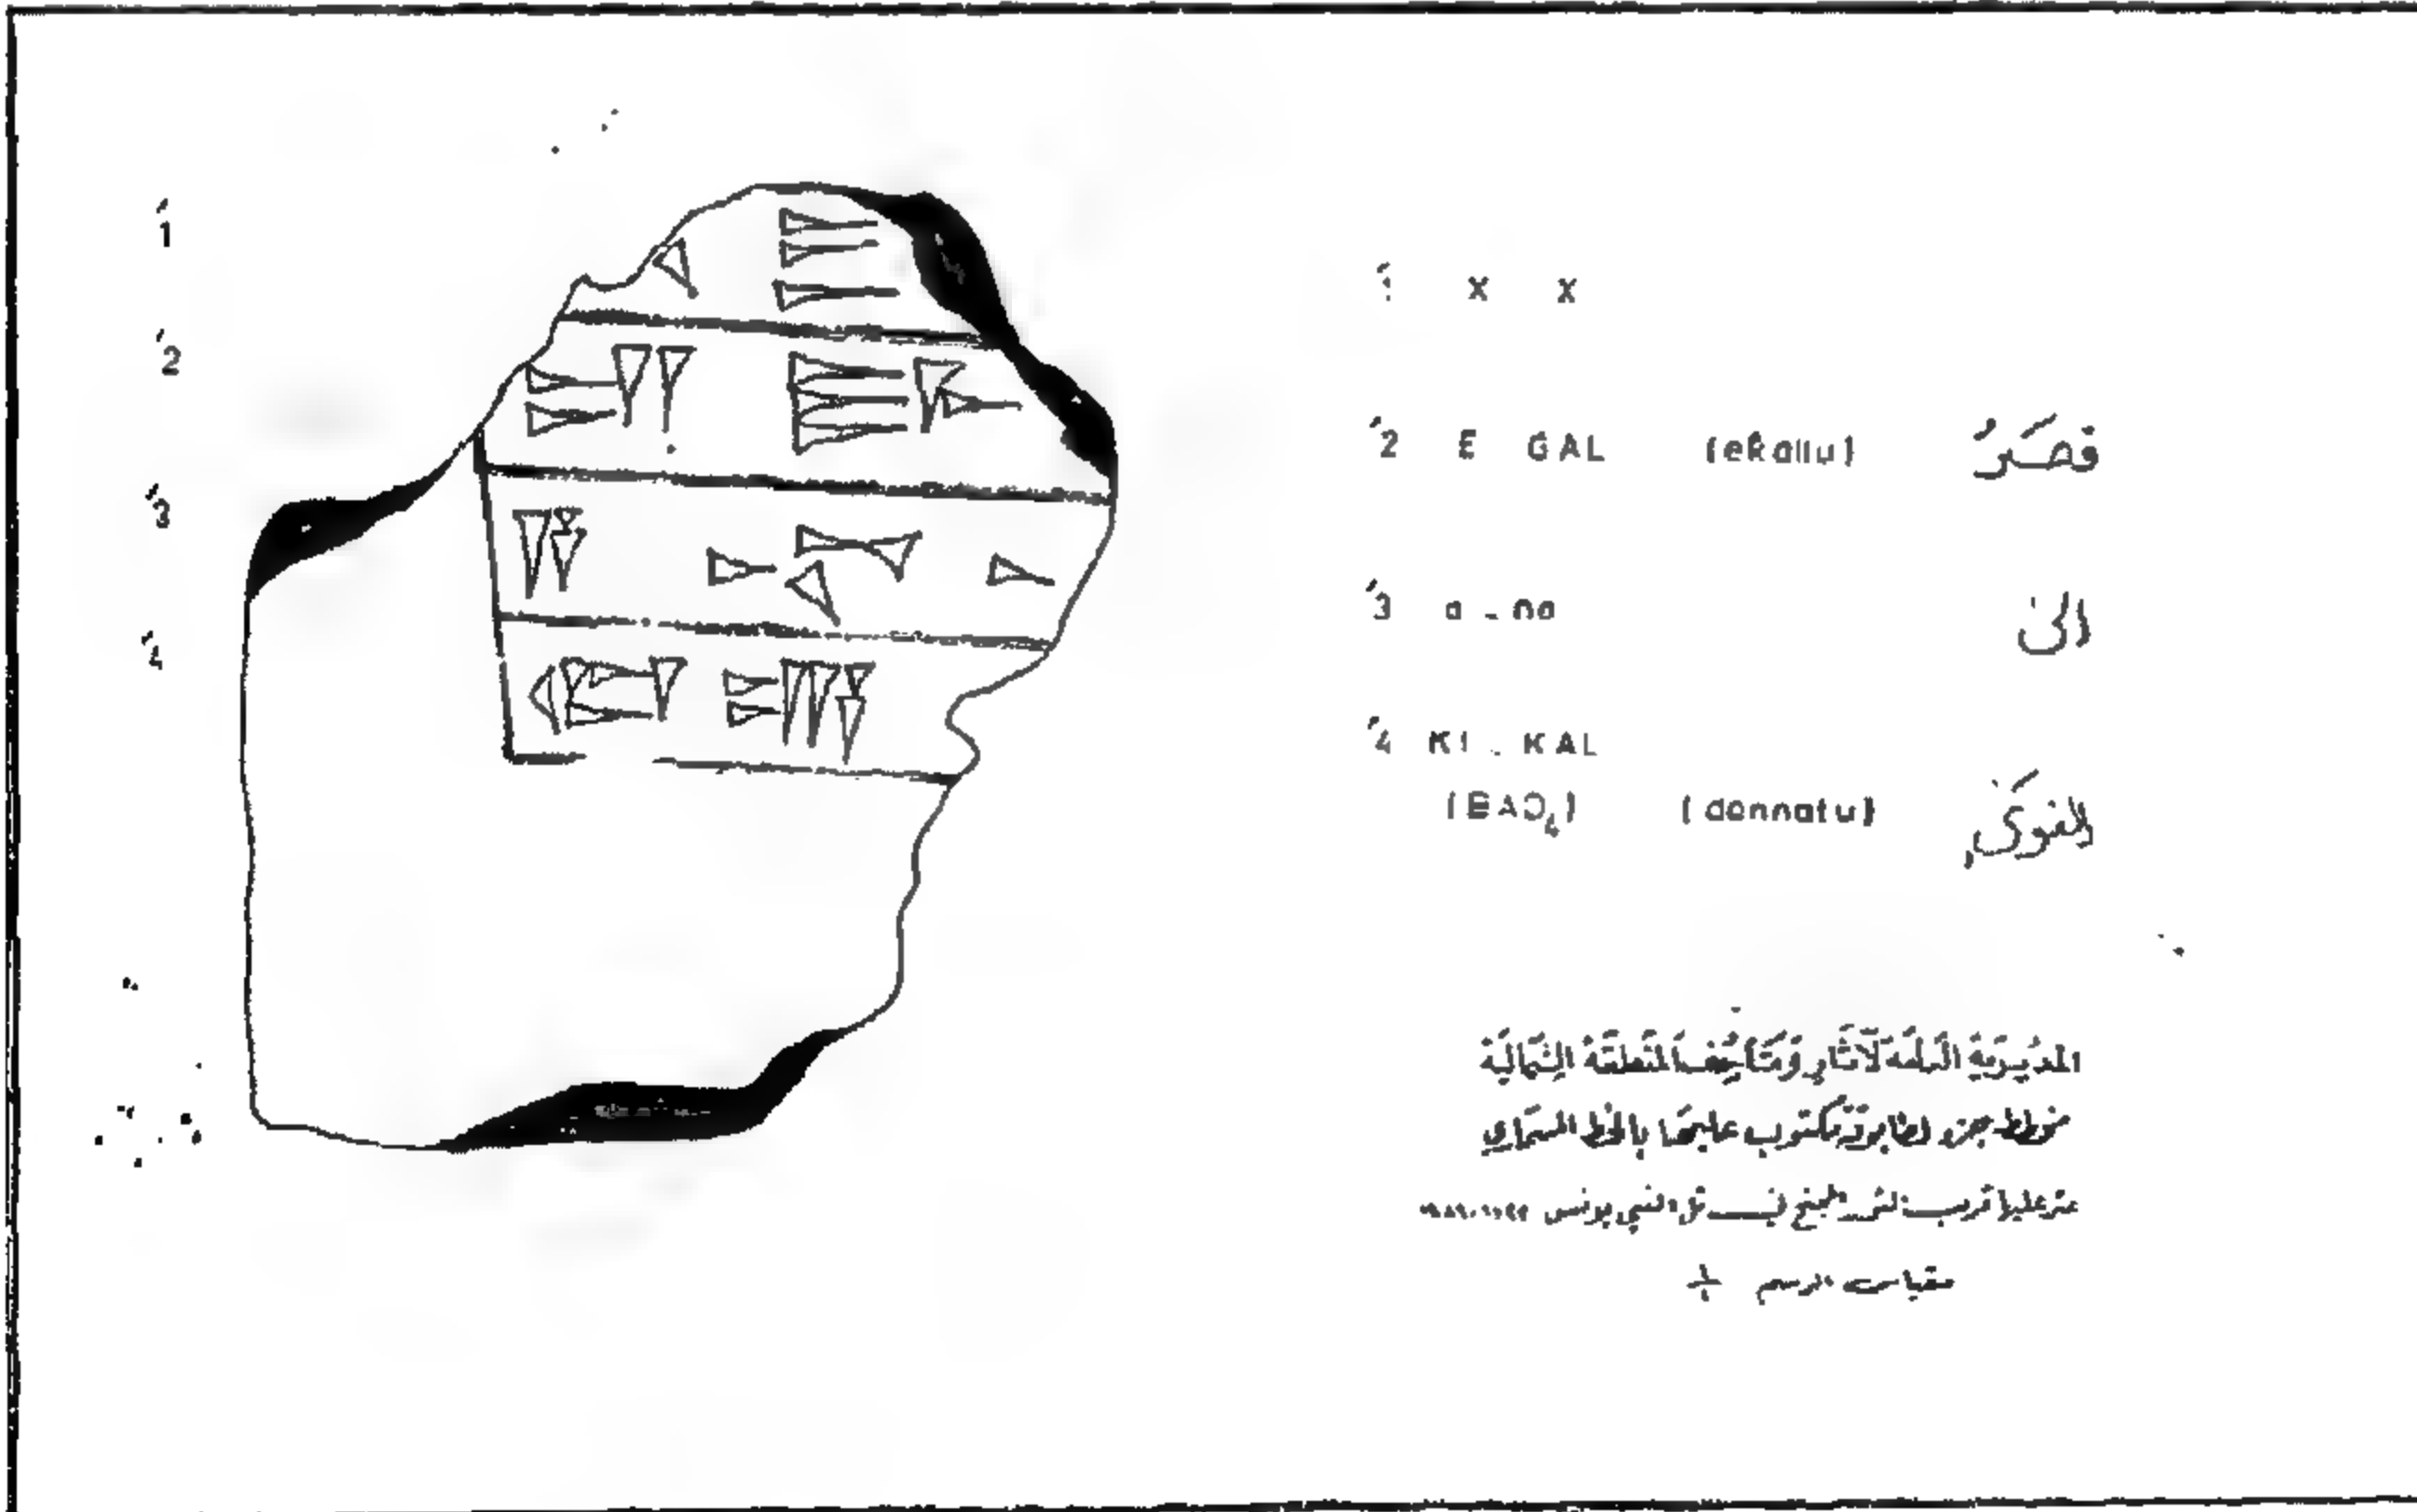 1́
2́
3́
4́
1́ x x
2́ E GAL (ekallu) قصر
3́ a - na الى
4́ KI - KAL
(BAD₄) (dannatu)
المديرية العامة لآثار ومتاحف المنطقة الشمالية
مخطط جزء لطابوقة مكتوب عليها بالخط المسماري
عثر عليها قرب الثور المجنح في تل النبي يونس
مقياس الرسم ١/١